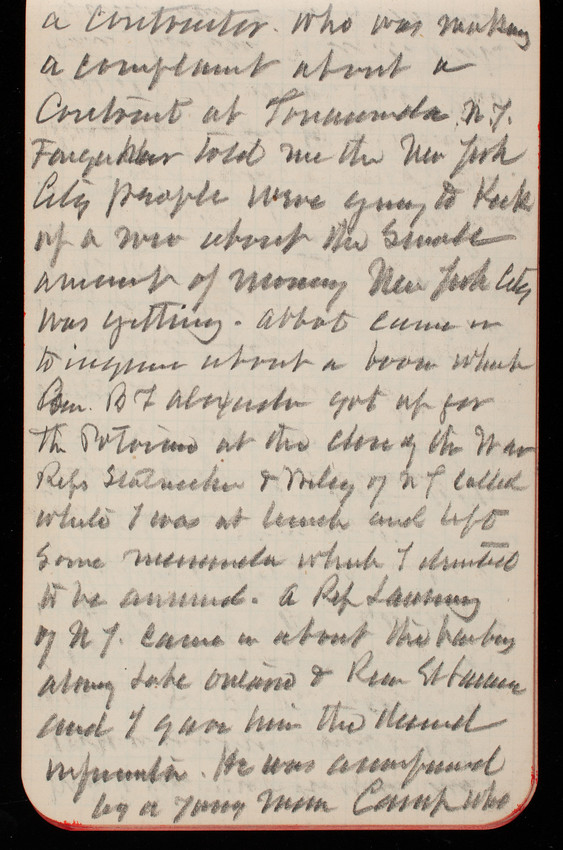 a contractor. who was making
a complaint about a
Contract at Tonawanda N.Y.
told me the New York
City people were going to kick
up a row about the Small
amount of money New York City
was getting. Abbot came in
to inquire about a boom which
Gen. B S Alexander got up for
the Potomac at the close of the War
Reps & Wiley of N Y called
while I was at lunch and left
Some memoranda which I directed
to be answered. A Rep
of N Y. came in about the harbors
along Lake Ontario & River St Lawrence
and I gave him the desired
information. He was accompanied
by a young man Camp who